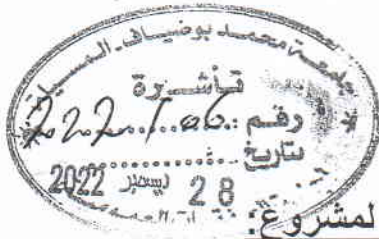 جامعة محمد بوضياف - المسيلة
تأشيرة
رقم :
بتاريخ
28 ديسمبر 2022
لمشروع: